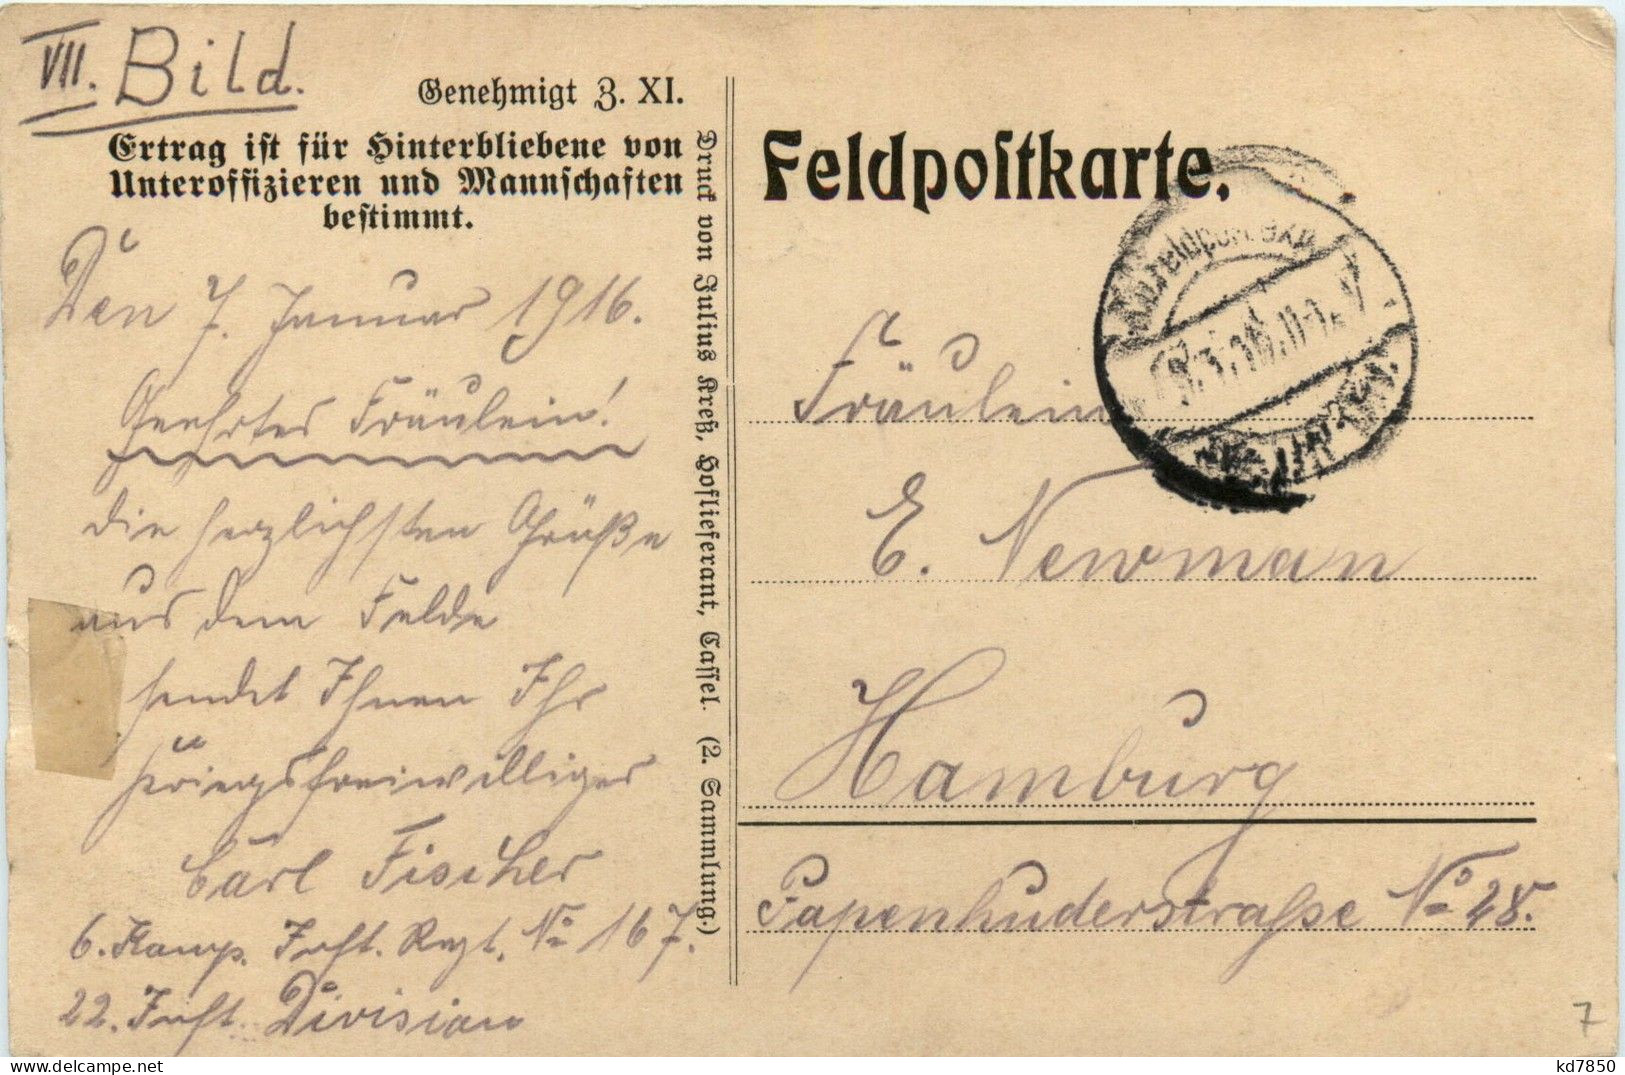 VII. Bild.
Genehmigt 3. XI.
Ertrag iſt für Hinterbliebene von
Unteroffizieren und Mannſchaften
beſtimmt.
Den 7. Januar 1916.
Geehrtes Fräulein!
die herzlichsten Grüße
aus dem Felde
sendet Ihnen Ihr
Kriegsfreiwilliger
Carl Fischer
6. Komp. Inft. Regt. No 167.
22. Inft. Division
Druck von Julius Kreß, Hoflieferant, Caſſel. (2. Sammlung.)
Feldpoſtkarte.
Fräulein
E. Newman
Hamburg
Papenhuderstraße No 28.
7
kd7850